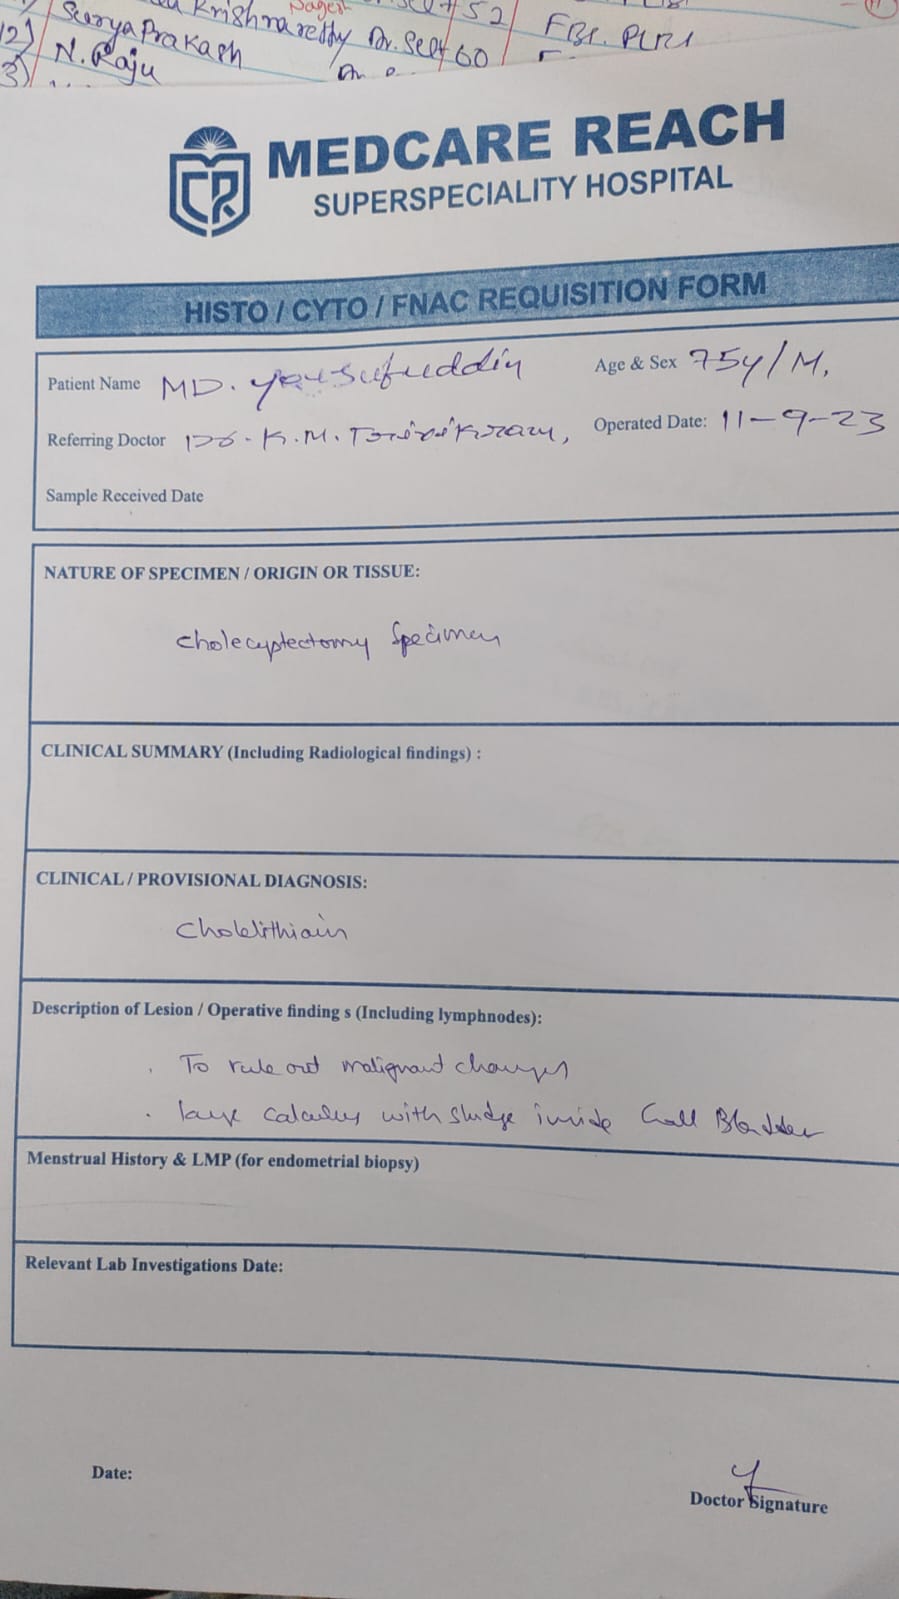 12) Surya Prakash Krishna reddy Dr. Self 60 FBS. PLBS
3) N. Raju
MEDCARE REACH
SUPERSPECIALITY HOSPITAL
HISTO / CYTO / FNAC REQUISITION FORM
Patient Name MD. yousufuddin Age & Sex 75y/M,
Referring Doctor Dr. K.M. Operated Date: 11-9-23
Sample Received Date
NATURE OF SPECIMEN / ORIGIN OR TISSUE:
Cholecyptectomy Specimen
CLINICAL SUMMARY (Including Radiological findings) :
CLINICAL / PROVISIONAL DIAGNOSIS:
Cholelithiasis
Description of Lesion / Operative finding s (Including lymphnodes):
. To rule out malignant changes
. large calculus with sludge inside Gall Bladder
Menstrual History & LMP (for endometrial biopsy)
Relevant Lab Investigations Date:
Date:
Doctor Signature